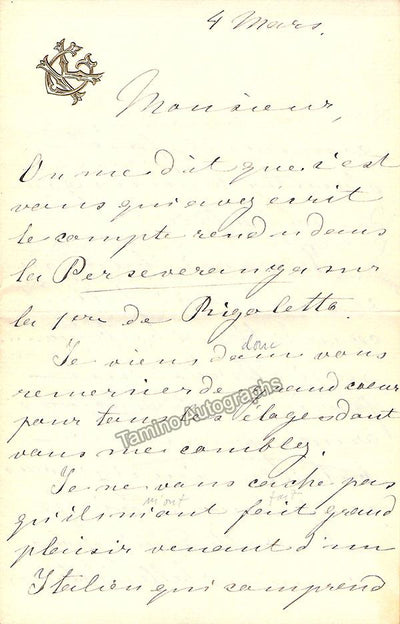 4 Mars.
Monsieur,
On me dit que c'est
vous qui avez écrit
le compte rendu dans
la Perseveranza sur
la 1re de Rigoletto.
donc
Je viens dont vous
remercier de grand cœur
pour tous les élogesdont
vous me comblez.
Je ne vous cache pas
m'ont fait
qu'ils m'ont fait grand
plaisir venant d'un
Italien qui comprend
Tamino Autographs